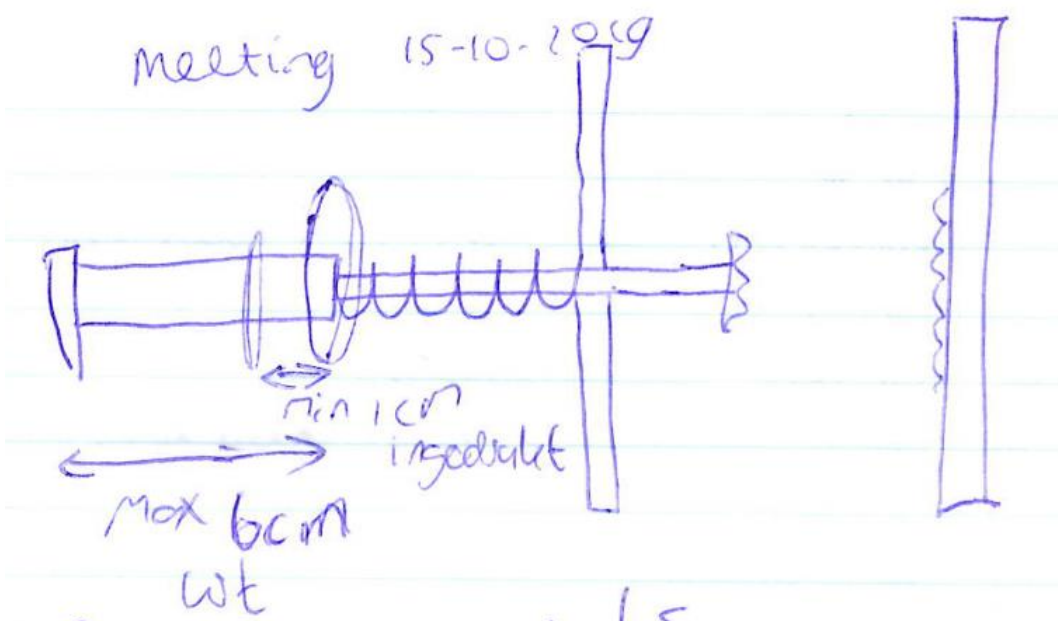 Meeting 15-10-2019
min 1cm
ingedrukt
Max 6cm